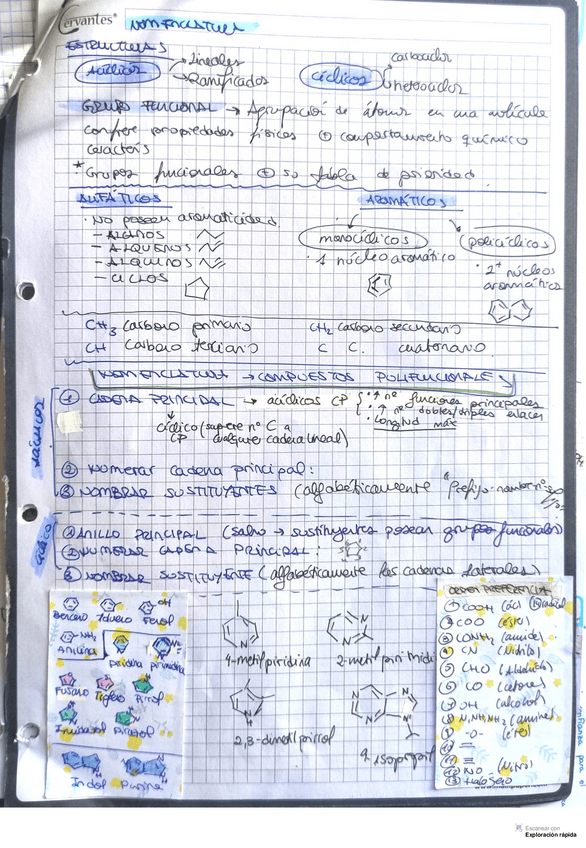 Cervantes
NOMENCLATURA
ESTRUCTURAS
Acíclicos → Lineales
→ Ramificados
Cíclicos
carbociclos
heterociclos
GRUPO FUNCIONAL → Agrupación de átomos en una molécula
confiere propiedades físicas ⊕ comportamiento químico
* Grupos funcionales ⊕ so tabla de prioridad.
ALIFÁTICOS
· No poseen aromaticidad
– ALCANOS
– ALQUENOS
– ALQUINOS
– CICLOS
AROMÁTICOS
monocíclicos
· 1 núcleo aromático
policíclicos
· 2+ núcleos
aromáticos
CH3 carbono primario
CH2 carbono secundario
CH carbono terciario
C C. cuaternario
NOMENCLATURA → COMPUESTOS POLIFUNCIONALES
ACÍCLICOS
① CADENA PRINCIPAL → acíclicos CP
· ↑ nº funciones principales
· ↑ nº dobles/triples enlaces
· longitud máx
cíclico (supere nº C a
CP cualquier cadena lineal)
② Numerar cadena principal:
③ NOMBRAR SUSTITUYENTES (alfabéticamente "Prefijo-nombre nº
Cíclico
① ANILLO PRINCIPAL (salvo → sustituyentes posean grupos funcionales)
② NUMERAR CADENA PRINCIPAL:
③ NOMBRAR SUSTITUYENTE (alfabéticamente las cadenas laterales)
Benceno Tolueno Fenol
OH
NH2
Anilina Piridina pirimidina
Furano Tiofeno Pirrol
Imidazol pirazol
Indol Purina
4-metilpiridina
2-metil pirimidi
2,3-dimetilpirrol
9 isopropil
ORDEN PREFERENCIA
① COOH (ác)
② COO (éster)
③ CONH2 (amida)
④ CN (Nitrilo)
⑤ CHO (Aldehído)
⑥ CO (cetona)
⑦ OH (alcohol)
⑧ N, NH, NH2 (amina)
⑨ -O- (éter)
⑩ =
⑪ ≡
⑫ NO (Nitro)
⑬ Halógeno
confianza para el
Escanear con
Exploración rápida